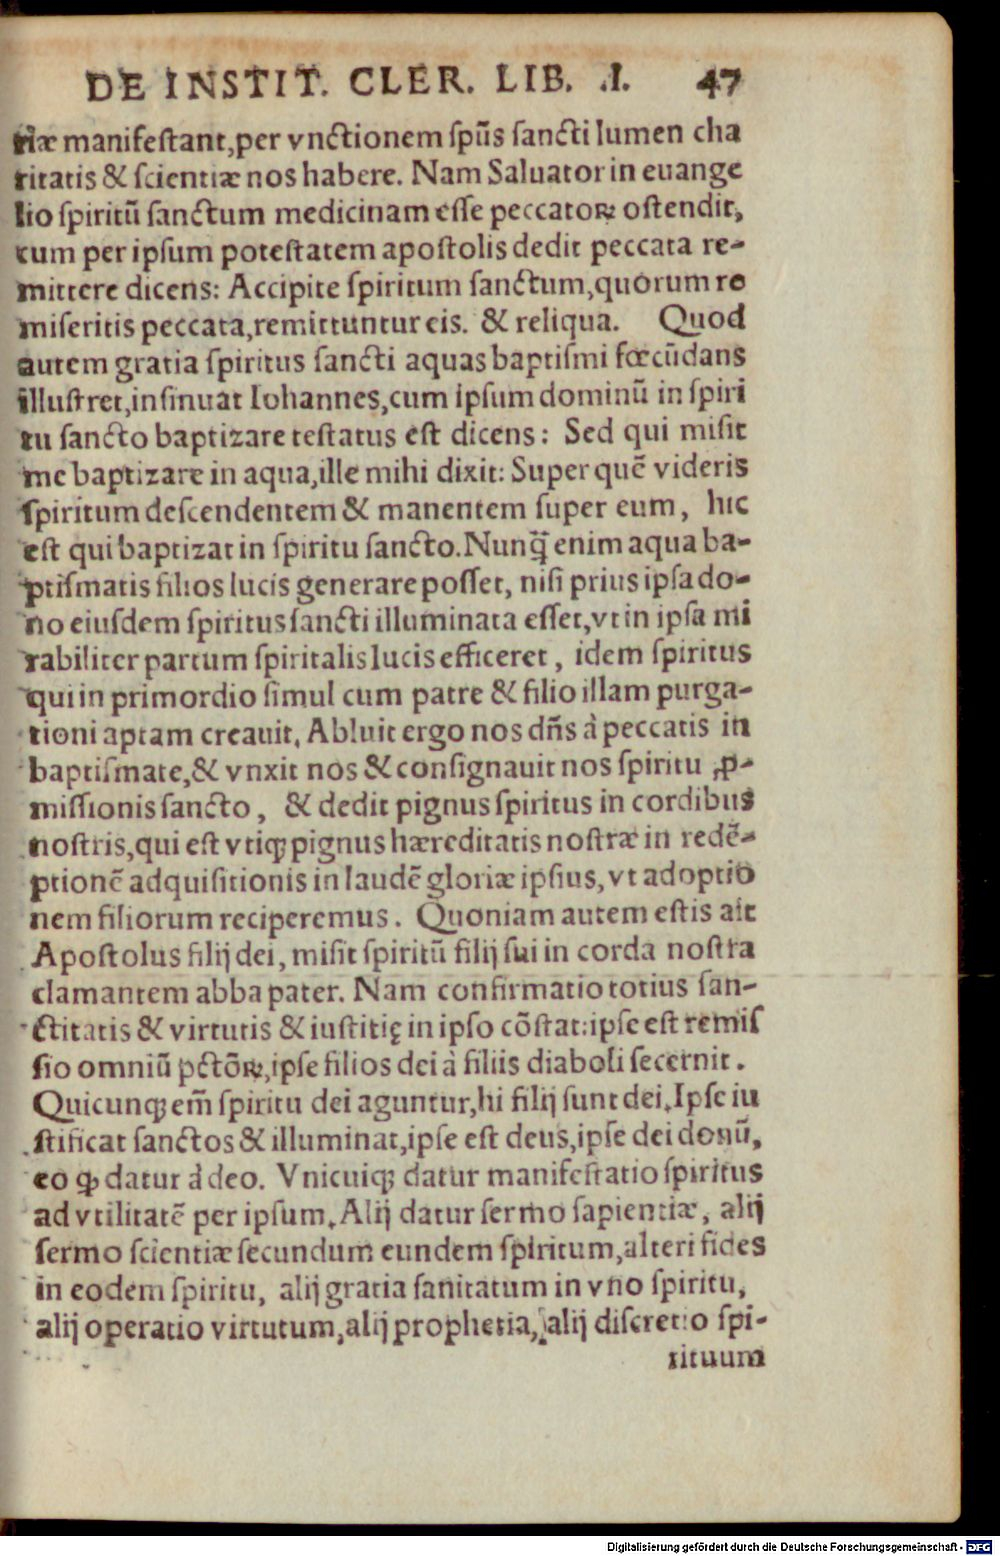 DE INSTIT. CLER. LIB. .I. 47
triæ manifestant,per vnctionem spūs sancti lumen cha
ritatis & scientiæ nos habere. Nam Saluator in euange
lio spiritū sanctum medicinam esse peccatoꝝ ostendit,
cum per ipsum potestatem apostolis dedit peccata re-
mittere dicens: Accipite spiritum sanctum,quorum re
miseritis peccata,remittuntur eis. & reliqua. Quod
autem gratia spiritus sancti aquas baptismi fœcūdans
illustret,insinuat Iohannes,cum ipsum dominū in spiri
tu sancto baptizare testatus est dicens: Sed qui misit
me baptizare in aqua,ille mihi dixit: Super quē videris
spiritum descendentem & manentem super eum, hic
est qui baptizat in spiritu sancto. Nunq̃ enim aqua ba-
ptismatis filios lucis generare posset, nisi prius ipsa do-
no eiusdem spiritus sancti illuminata esset,vt in ipsa mi
rabiliter partum spiritalis lucis efficeret, idem spiritus
qui in primordio simul cum patre & filio illam purga-
tioni aptam creauit. Abluit ergo nos dñs à peccatis in
baptismate,& vnxit nos & consignauit nos spiritu ꝓ-
missionis sancto, & dedit pignus spiritus in cordibus
nostris,qui est vtiqꝫ pignus hæreditatis nostræ in redē-
ptionē adquisitionis in laudē gloriæ ipsius, vt adoptio
nem filiorum reciperemus. Quoniam autem estis ait
Apostolus filij dei, misit spiritū filij sui in corda nostra
clamantem abba pater. Nam confirmatio totius san-
ctitatis & virtutis & iustitię in ipso cōstat:ipse est remis
sio omniū pctōꝝ,ipse filios dei à filiis diaboli secernit.
Quicunqꝫ em̄ spiritu dei aguntur,hi filij sunt dei. Ipse iu
stificat sanctos & illuminat,ipse est deus,ipse dei donū,
eo ꝙ datur à deo. Vnicuiqꝫ datur manifestatio spiritus
ad vtilitatē per ipsum. Alij datur sermo sapientiæ, alij
sermo scientiæ secundum eundem spiritum,alteri fides
in eodem spiritu, alij gratia sanitatum in vno spiritu,
alij operatio virtutum,alij prophetia, alij discretio spi-
rituum
Digitalisierung gefördert durch die Deutsche Forschungsgemeinschaft - DFG